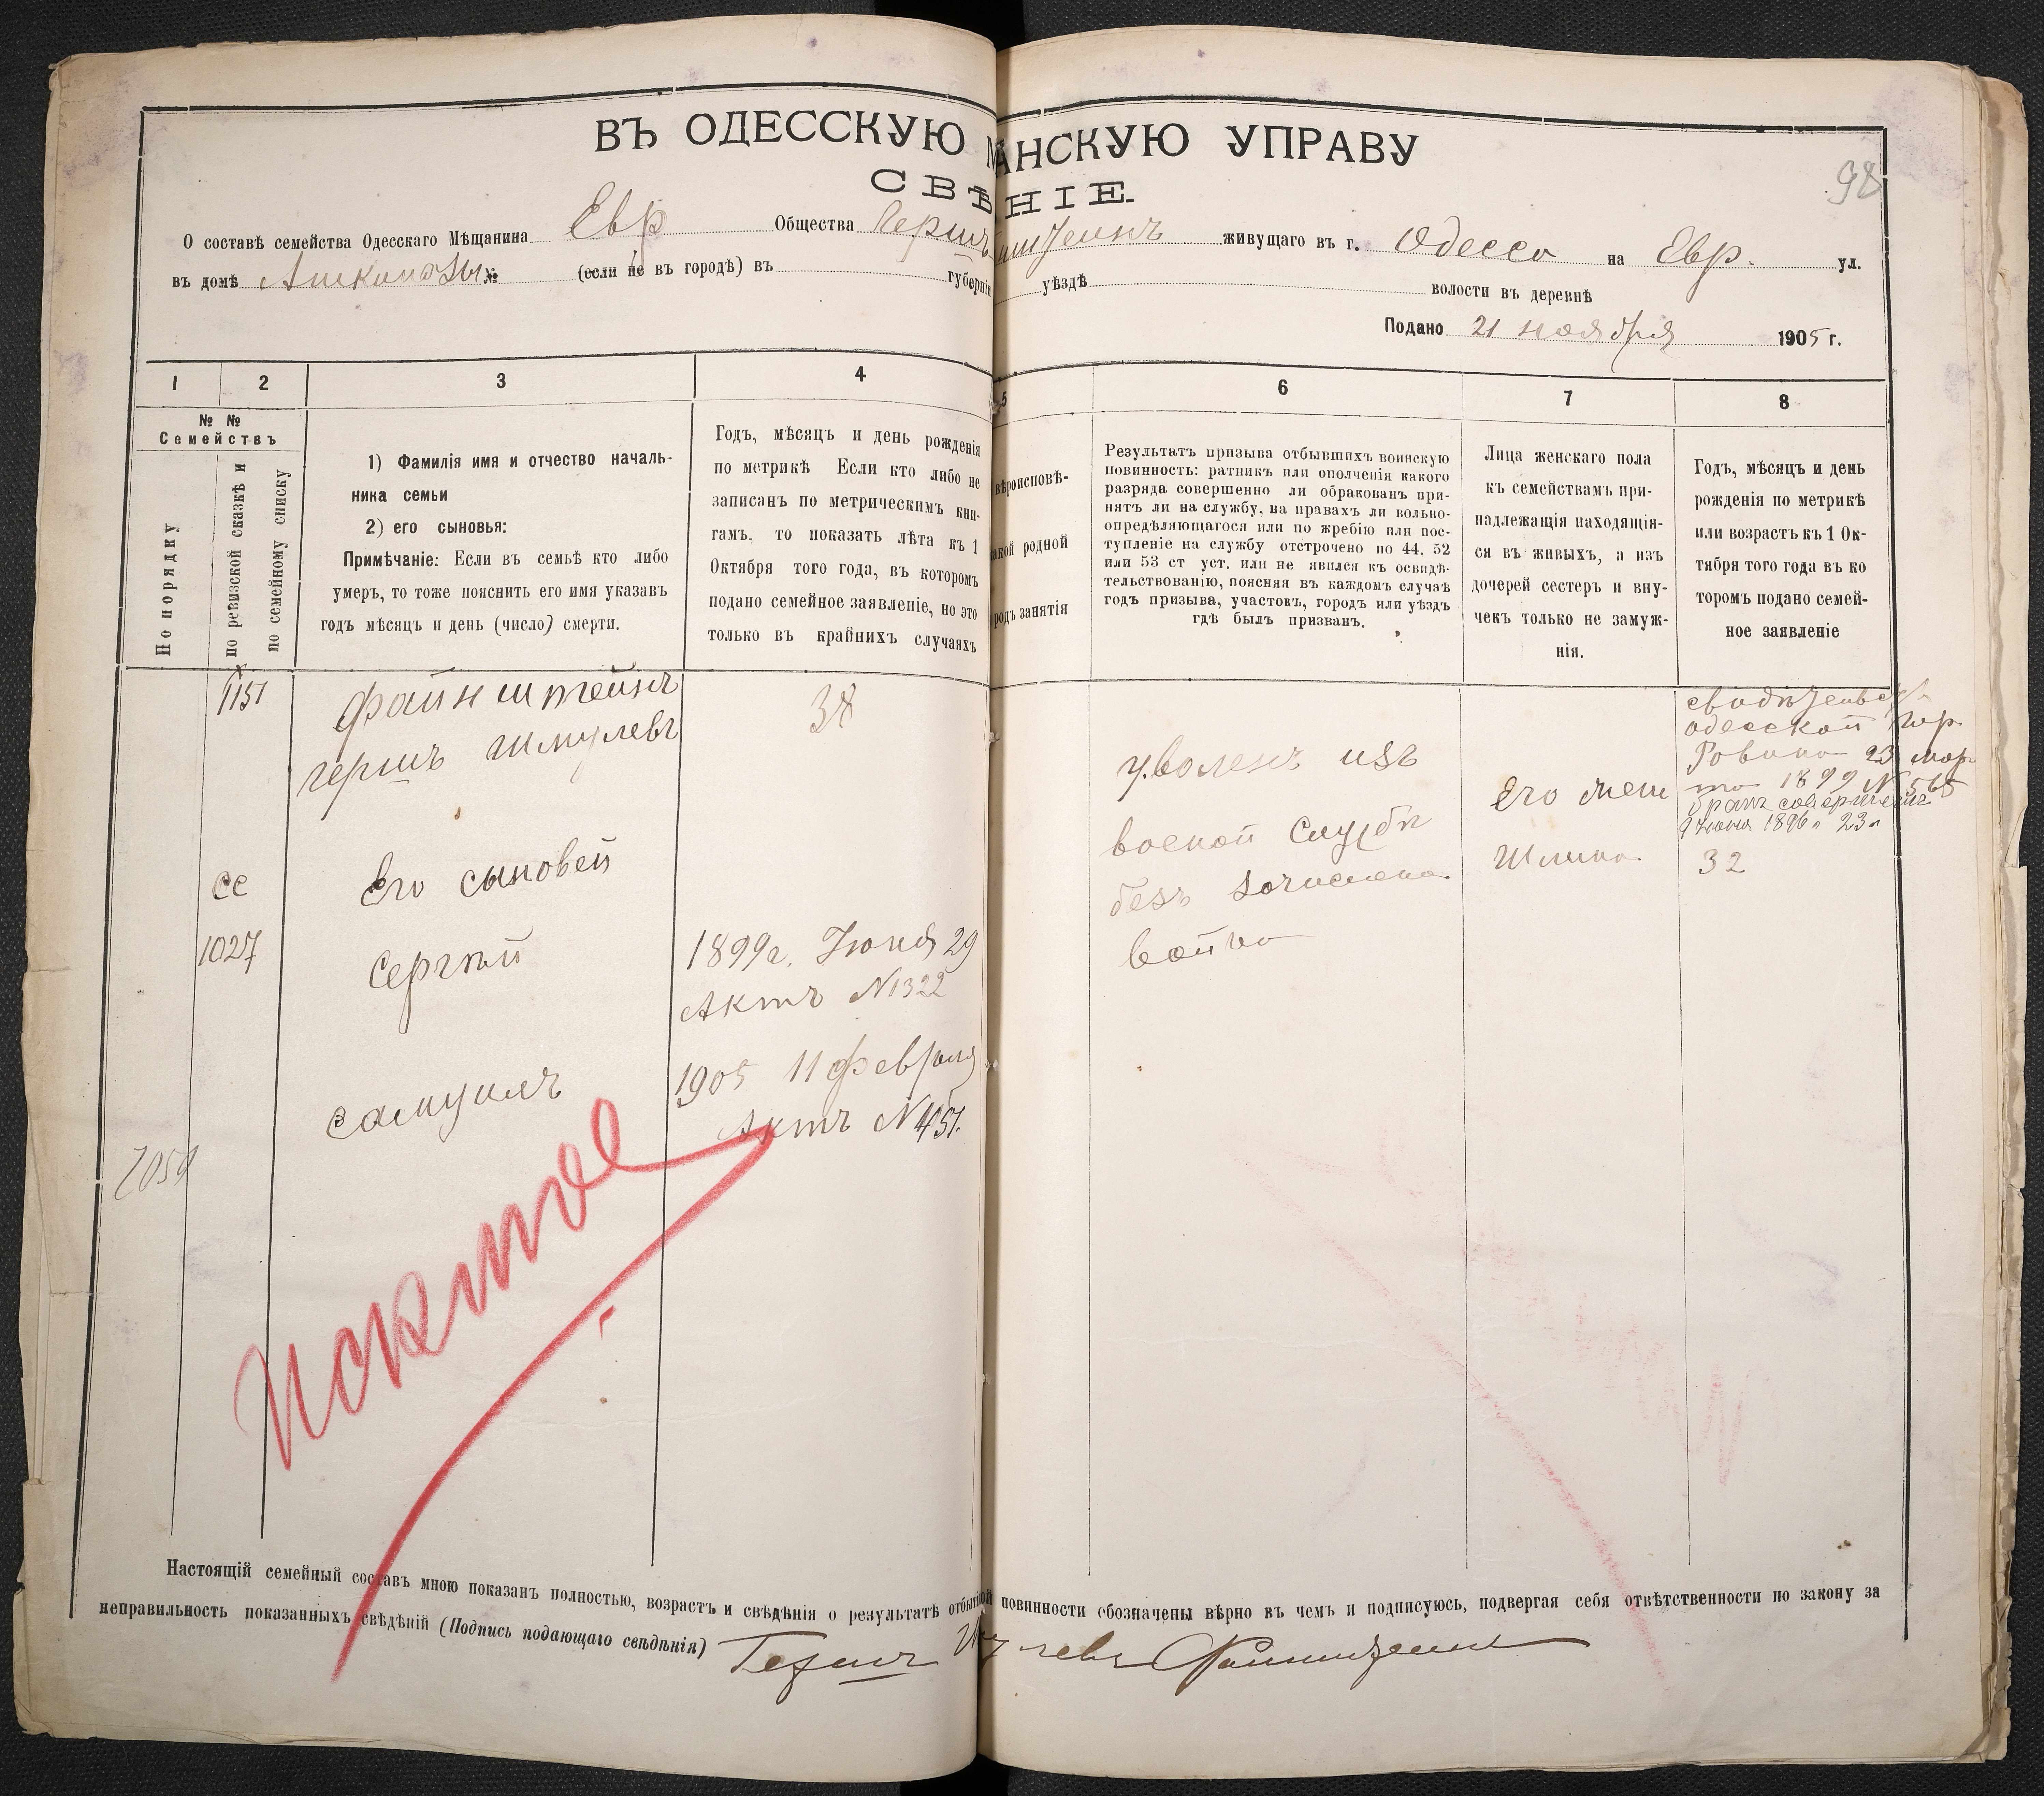 ВЪ ОДЕССКУЮ М АНСКУЮ УПРАВУ
СВѢ НІЕ.
98
О составѣ семейства Одесскаго Мѣщанина Евр Общества Гершъ живущаго въ г. Одесса на Евр. ул.
въ домѣ Ашкинозы № (если не въ городѣ) въ губерніи уѣздѣ волости въ деревнѣ
Подано 21 ноября 1905 г.
1 2 3 4 5 6 7 8
№ №
Семействъ
По порядку
по ревизской сказкѣ и
по семейному списку
1) Фамилія имя и отчество началь-
ника семьи
2) его сыновья:
Примѣчаніе: Если въ семьѣ кто либо
умеръ, то тоже пояснить его имя указавъ
годъ мѣсяцъ и день (число) смерти.
Годъ, мѣсяцъ и день рожденія
по метрикѣ Если кто либо не
записанъ по метрическим кни-
гамъ, то показать лѣта къ 1
Октября того года, въ которомъ
подано семейное заявленіе, но это
только въ крайнихъ случаяхъ
вѣроисповѣ-
акой родной
родъ занятія
Результатъ призыва отбывшихъ воинскую
повинность: ратникъ или ополченія какого
разряда совершенно ли обракованъ при-
нятъ ли на службу, на правахъ ли вольно-
опредѣляющагося или по жребію или пос-
тупленіе на службу отстрочено по 44, 52
или 53 ст уст. или не явился къ освидѣ-
тельствованію, поясняя въ каждомъ случаѣ
годъ призыва, участокъ, городъ или уѣздъ
гдѣ былъ призванъ.
Лица женскаго пола
къ семействамъ при-
надлежащія находящія-
ся въ живыхъ, а изъ
дочерей сестеръ и вну-
чекъ только не замуж-
нія.
Годъ, мѣсяцъ и день
рожденія по метрикѣ
или возрастъ къ 1 Ок-
тября того года въ ко
торомъ подано семей-
ное заявленіе
1151 Файнштейнъ 38
гершъ Шмулевъ
уволенъ изъ
военой службы
безъ зочислена
войско
Его жена
Шлима 32
одесской гор
Ровина 23 мар
та 1899 N 565
бракъ совершенъ
9 июня 1896 г 23 л
сс Его сыновей
1027 Сергѣй 1899г. Июня 29
Актъ N1322
самуилъ 1905 11 февраля
Актъ N451.
7059
Настоящій семейный составъ мною показанъ полностью, возрастъ и свѣдѣнія о результатѣ отбытой повинности обозначены вѣрно въ чемъ и подписуюсь, подвергая себя отвѣтственности по закону за
неправильность показанныхъ свѣдѣній (Подпись подающаго свѣдѣнія) Гершъ Шмулевъ Файнштейнъ